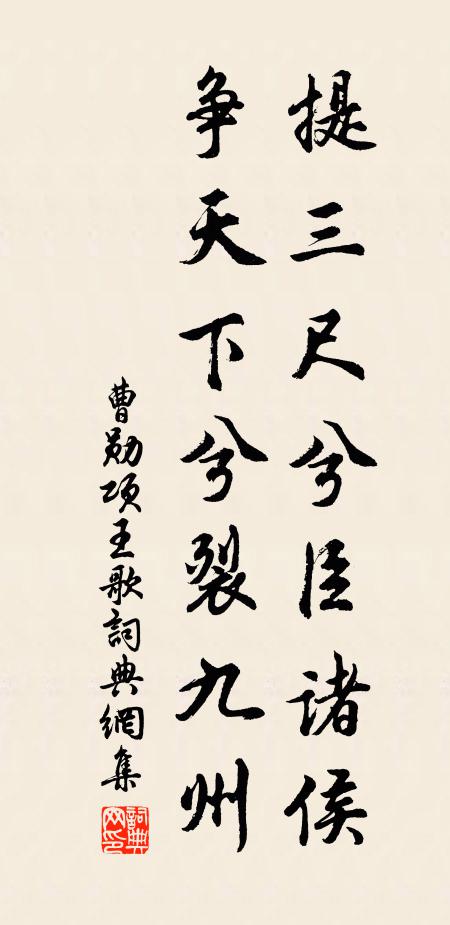 提三尺兮臣诸侯
争天下兮裂九州
曹勋项王歌詞典網集
詞典网印